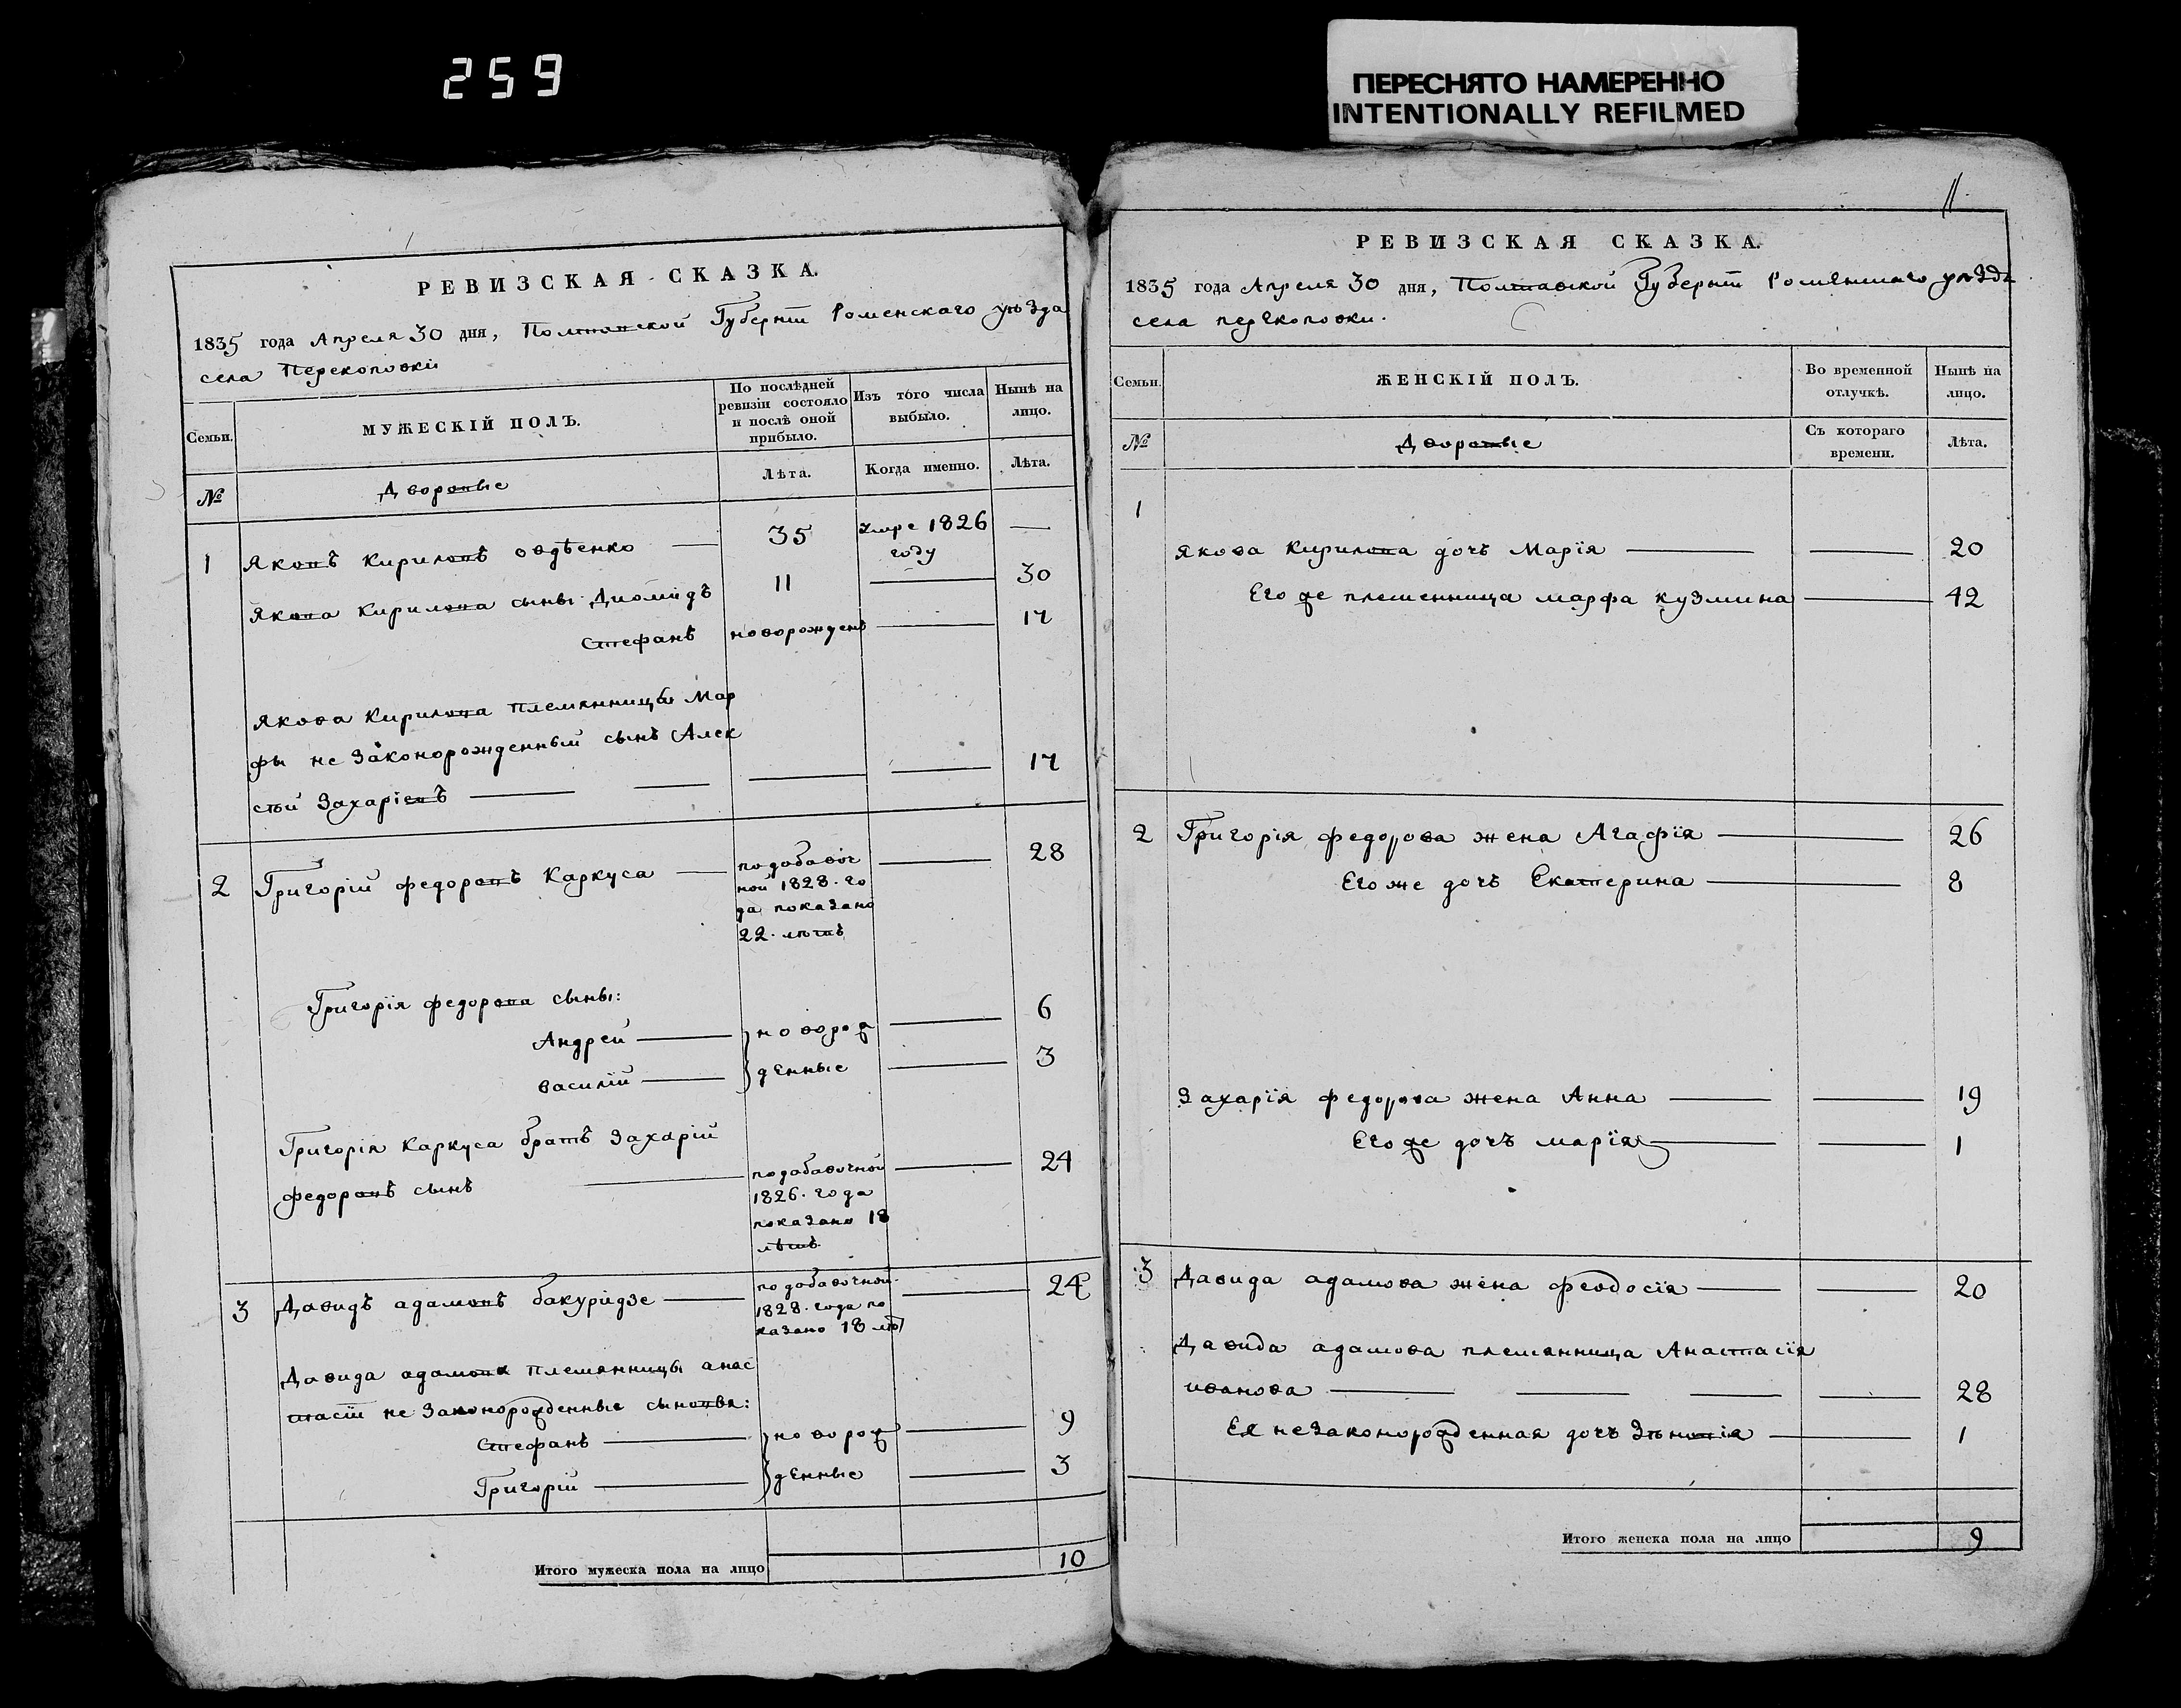 259
ПЕРЕСНЯТО НАМЕРЕННО
INTENTIONALLY REFILMED
РЕВИЗСКАЯ СКАЗКА.
1835 года Апреля 30 дня, Полтавской Губернїи Роменскаго уѣзда
села Перекоповки
Семьи.
МУЖЕСКІЙ ПОЛЪ.
По послѣдней ревизіи состояло и послѣ оной прибыло.
Изъ того числа выбыло.
Нынѣ на лицо.
№
Дворовые
Лѣта.
Когда именно.
Лѣта.
1 Яковъ Кириловъ овдѣенко — 35 умре 1826 году —
Якова Кирилова сыны Диомидъ 11 — 30
Стефанъ новорожденъ — 17
Якова Кирилова племянницы Мар
фы не законорожденный сынъ Алек
сѣй Захаріевъ — 17
2 Григорій федоровъ Каркуса — 28
по добавоч
ной 1828. го
да показано
22. лѣтъ
Григорія федорова сыны:
Андрей — новорож — 6
василій — денные — 3
Григорія Каркуса братъ Захарій
федоровъ сынъ — 24
по добавочной
1826. года
показано 18
лѣтъ
3 Давидъ адамовъ бакурідзе — 24
по добавочной
1828. года по
казано 18 лѣ
Давида адамова племянницы анас
тасїи не законорожденные сыновья:
Стефанъ — новорож — 9
Григорій — денные — 3
Итого мужеска пола на лицо 10
11
РЕВИЗСКАЯ СКАЗКА.
1835 года Апреля 30 дня, Полтавской Губернїи Роменскаго уѣзда
села перекоповки.
Семьи.
ЖЕНСКІЙ ПОЛЪ.
Во временной отлучкѣ.
Нынѣ на лицо.
№
Дворовые
Съ котораго времени.
Лѣта.
1
якова Кирилова дочь Марїя — 20
Его же племенница марфа кузмина — 42
2 Григорія федорова жена Агафїя — 26
Его же дочь Екатерина — 8
Захарїя федорова жена Анна — 19
Его же дочь марїя — 1
3 Давида адамова жена феодосїя — 20
Давида адамова племянница Анастасїя
иванова — 28
Ея незаконорожденная дочь — 1
Итого женска пола на лицо 9